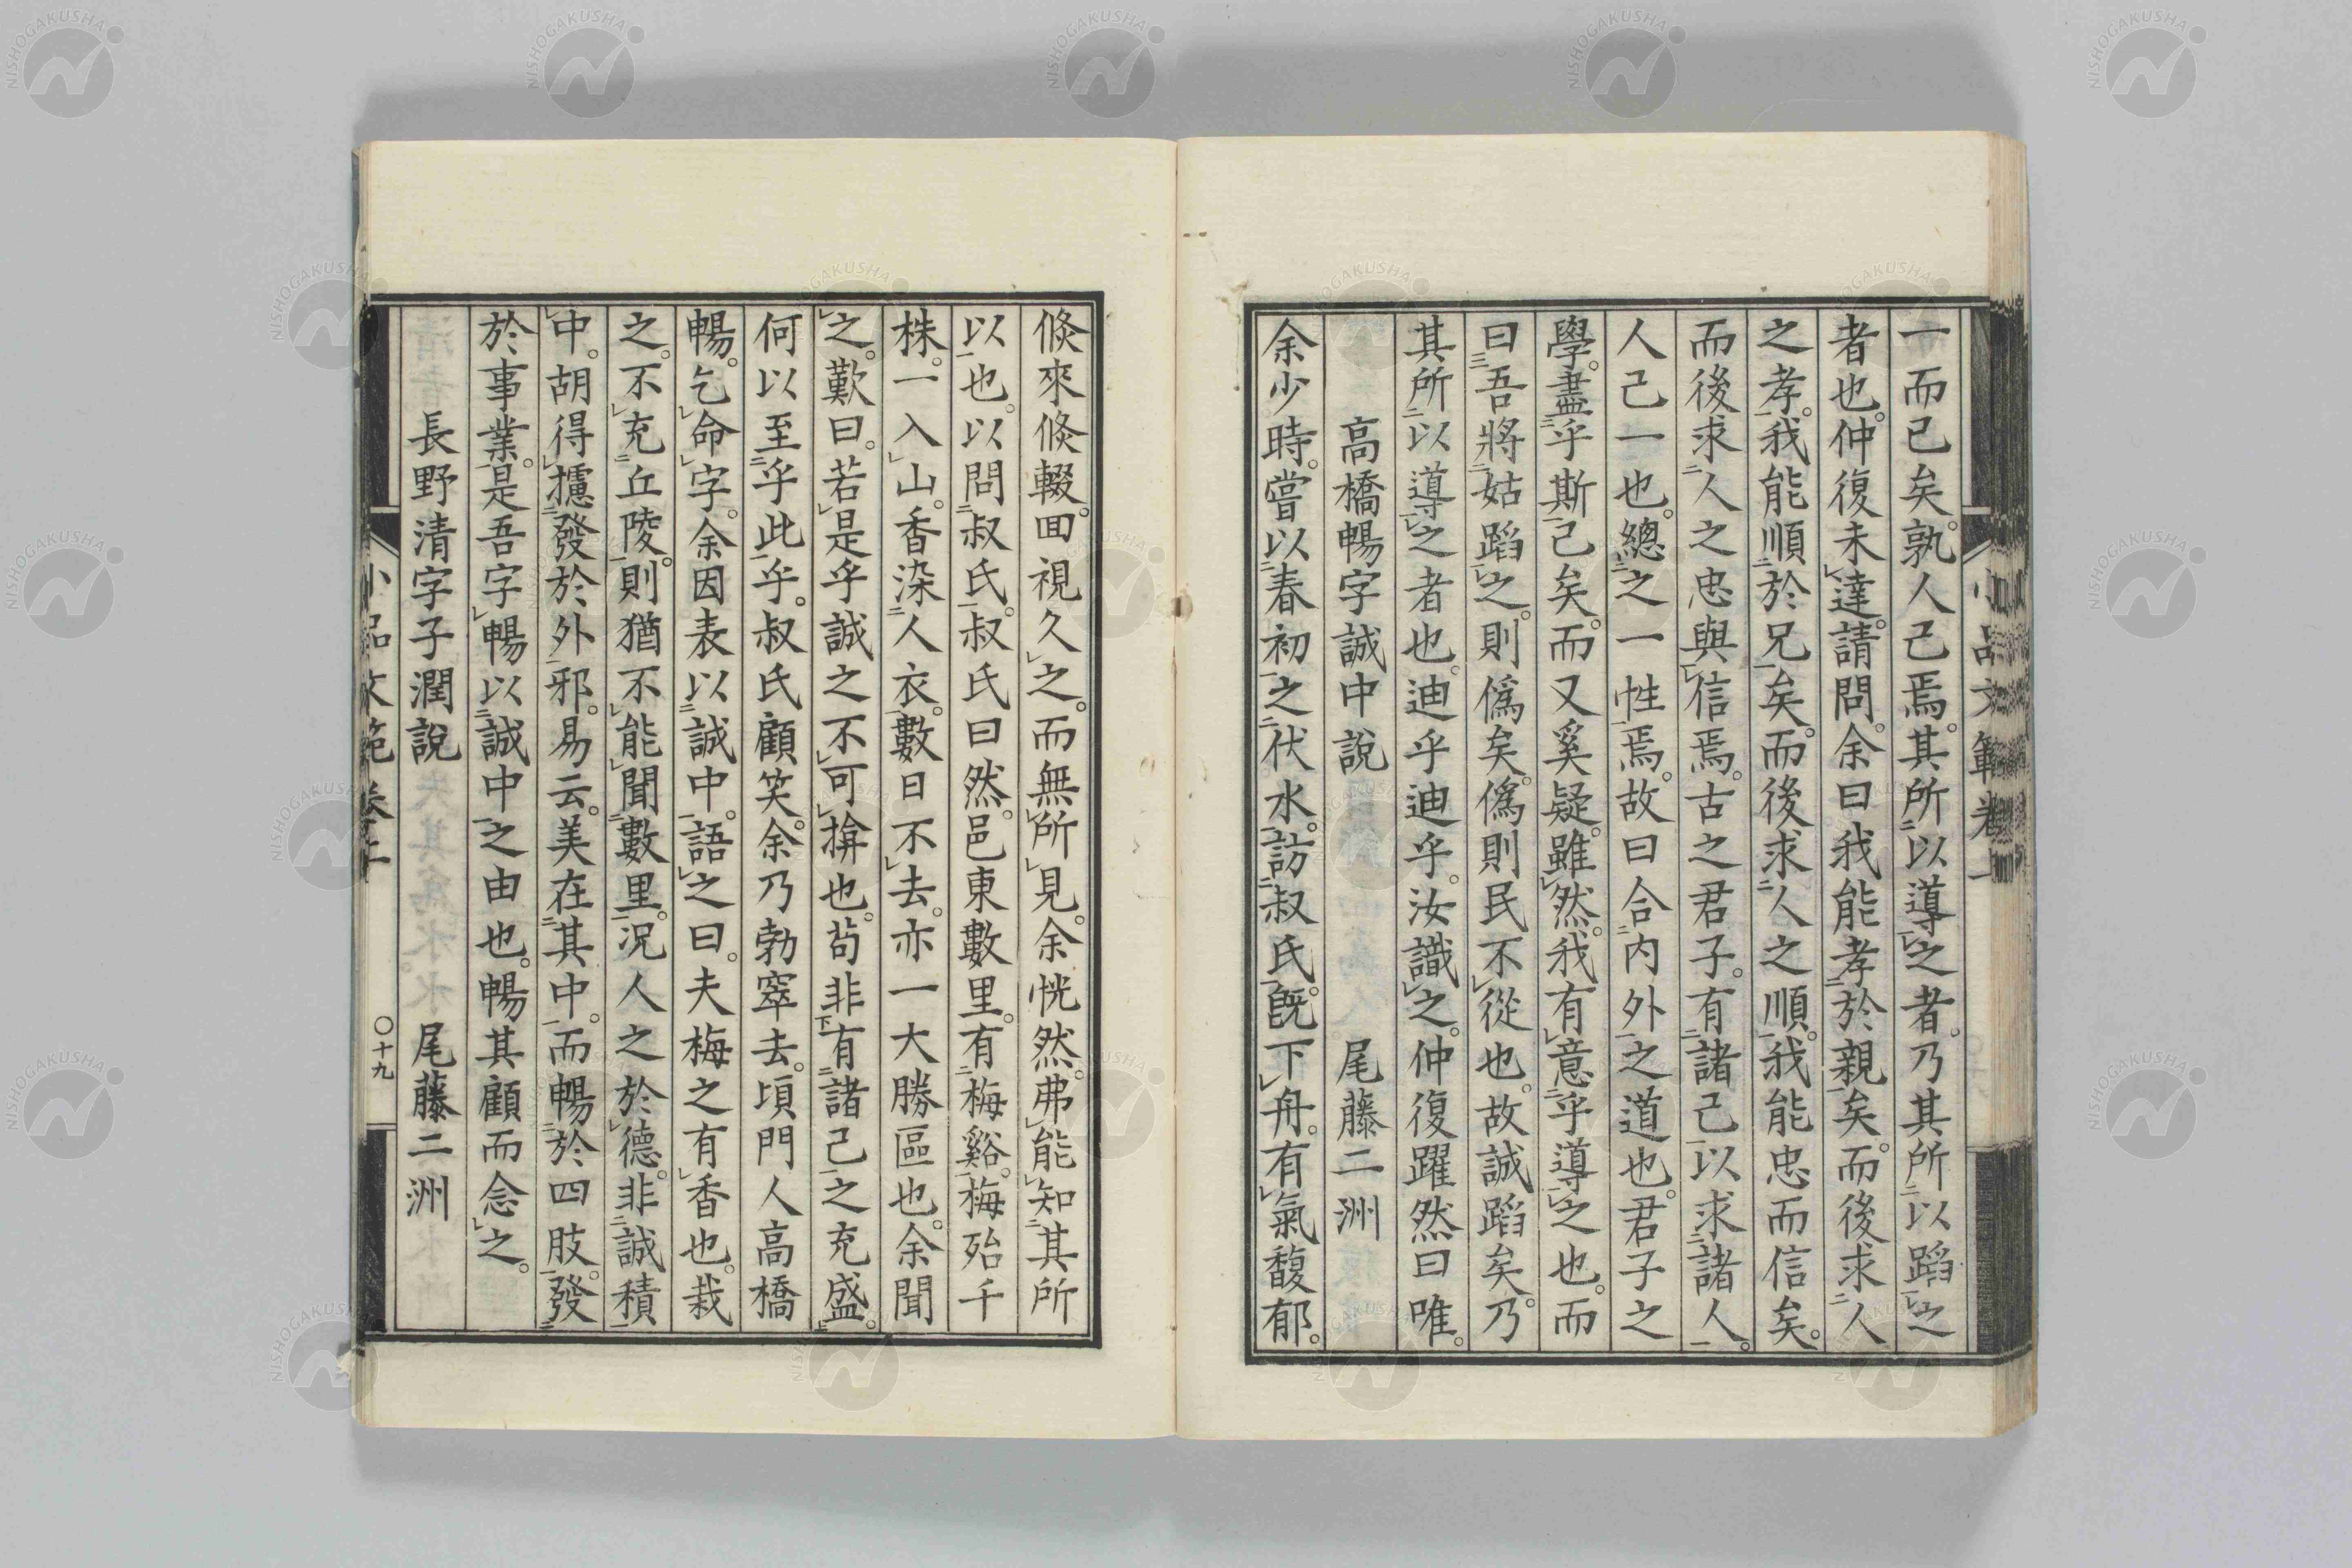 一而已矣。孰人己焉。其所以導之者。乃其所以蹈之
者也。仲復未達。請問。余曰我能孝於親矣。而後求人
之孝。我能順於兄矣。而後求人之順。我能忠而信矣。
而後求人之忠與信焉。古之君子。有諸己以求諸人。
人己一也。總之一性焉。故曰合內外之道也。君子之
學。盡乎斯己矣。而又奚疑。雖然。我有意乎導之也。而
曰吾將姑蹈之。則偽矣。偽則民不從也。故誠蹈矣。乃
其所以導之者也。迪乎迪乎。汝識之。仲復躍然曰唯。
高橋暢字誠中說 尾藤二洲
余少時。嘗以春初之伏水。訪叔氏。既下舟。有氣馥郁。
倏來倏輟。回視久之。而無所見。余恍然。弗能知其所
以也。以問叔氏。叔氏曰然。邑東數里。有梅谿。梅殆千
株。一入山。香染人衣。數日不去。亦一大勝區也。余聞
之。歎曰。若是乎誠之不可揜也。苟非有諸己之充盛。
何以至乎此乎。叔氏顧笑。余乃勃窣去。頃門人高橋
暢。乞命字。余因表以誠中。語之曰。夫梅之有香也。栽
之。不充丘陵。則猶不能聞數里。況人之於德。非誠積
中。胡得攄發於外邪。易云。美在其中。而暢於四肢。發
於事業。是吾字暢以誠中之由也。暢其顧而念之。
長野清字子潤說 尾藤二洲
小品文範 卷二
〇十九
NISHOGAKUSHA